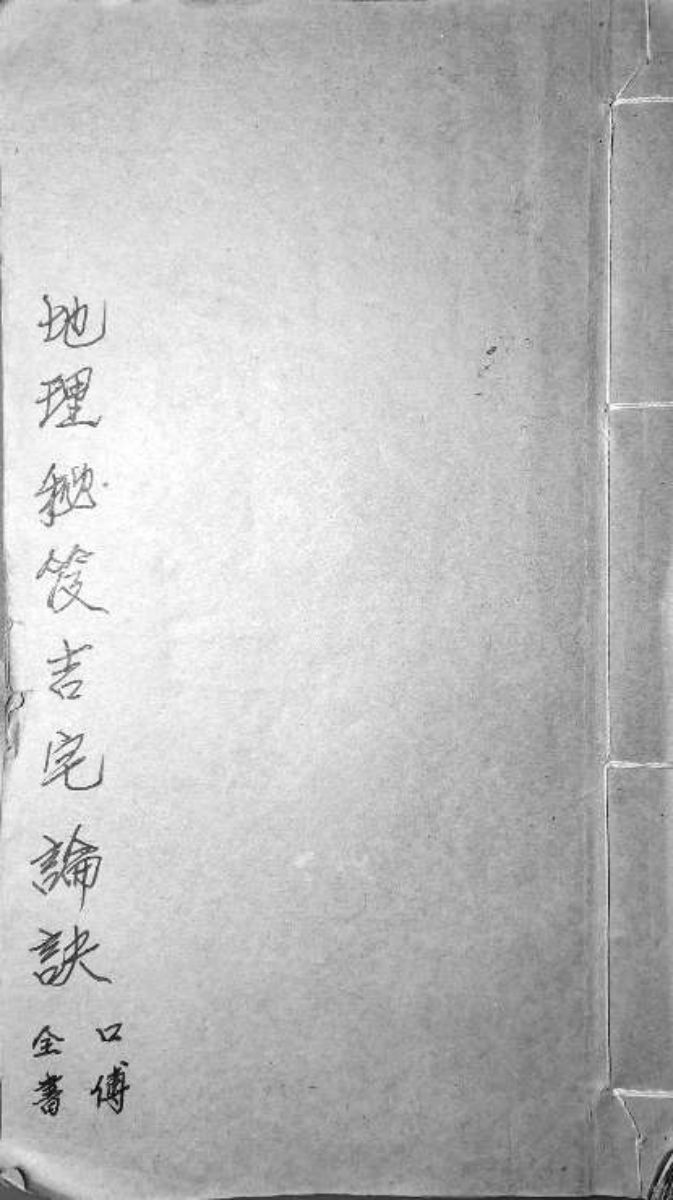 地理秘笈吉宅論訣
口傳
全書